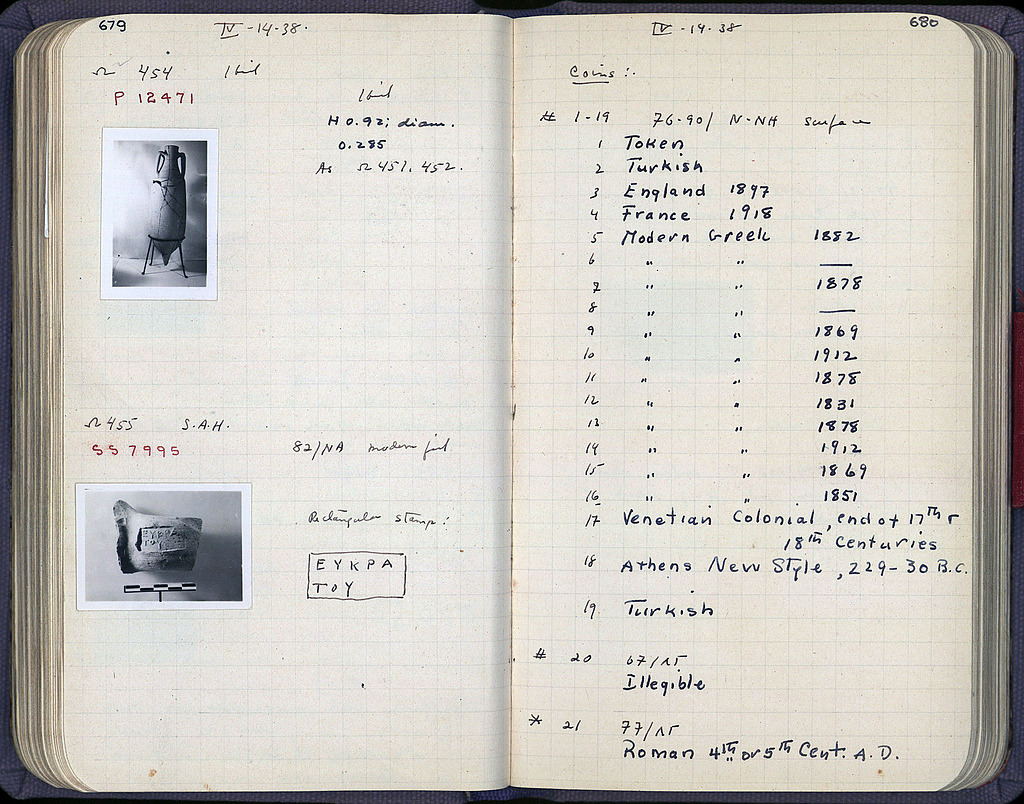 679
IV -14-38.
Ω 454
P 12471
H 0.92; diam.
0.285
As Ω 451, 452.
Ω 455 S.A.H.
SS 7995
82/NA modern fill
ΕΥΚΡΑ
ΤΟΥ
Rectangular stamp:
ΕΥΚΡΑ
ΤΟΥ
680
IV -14-38
Coins:
# 1-19 76-90/ N-NH surface
1 Token
2 Turkish
3 England 1897
4 France 1918
5 Modern Greek 1882
6 " " —
7 " " 1878
8 " " —
9 " " 1869
10 " " 1912
11 " " 1878
12 " " 1831
13 " " 1878
14 " " 1912
15 " " 1869
16 " " 1851
17 Venetian Colonial, end of 17th
18th Centuries
18 Athens New Style, 229-30 B.C.
19 Turkish
# 20 67/ΛΓ
Illegible
* 21 77/ΛΓ
Roman 4th or 5th Cent. A.D.